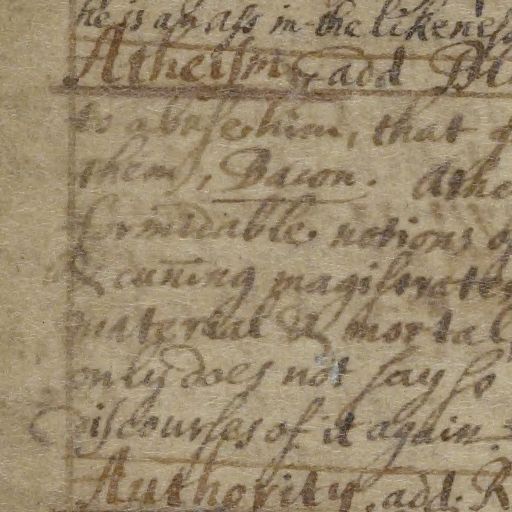 he is an ass in the likeness
Atheism, add
to abuse him, that
them, Bacon. Athe
formidable notions of
& cuning magistrates
material & mortal
only does not say so
Discourses of it again
Authority, add. R